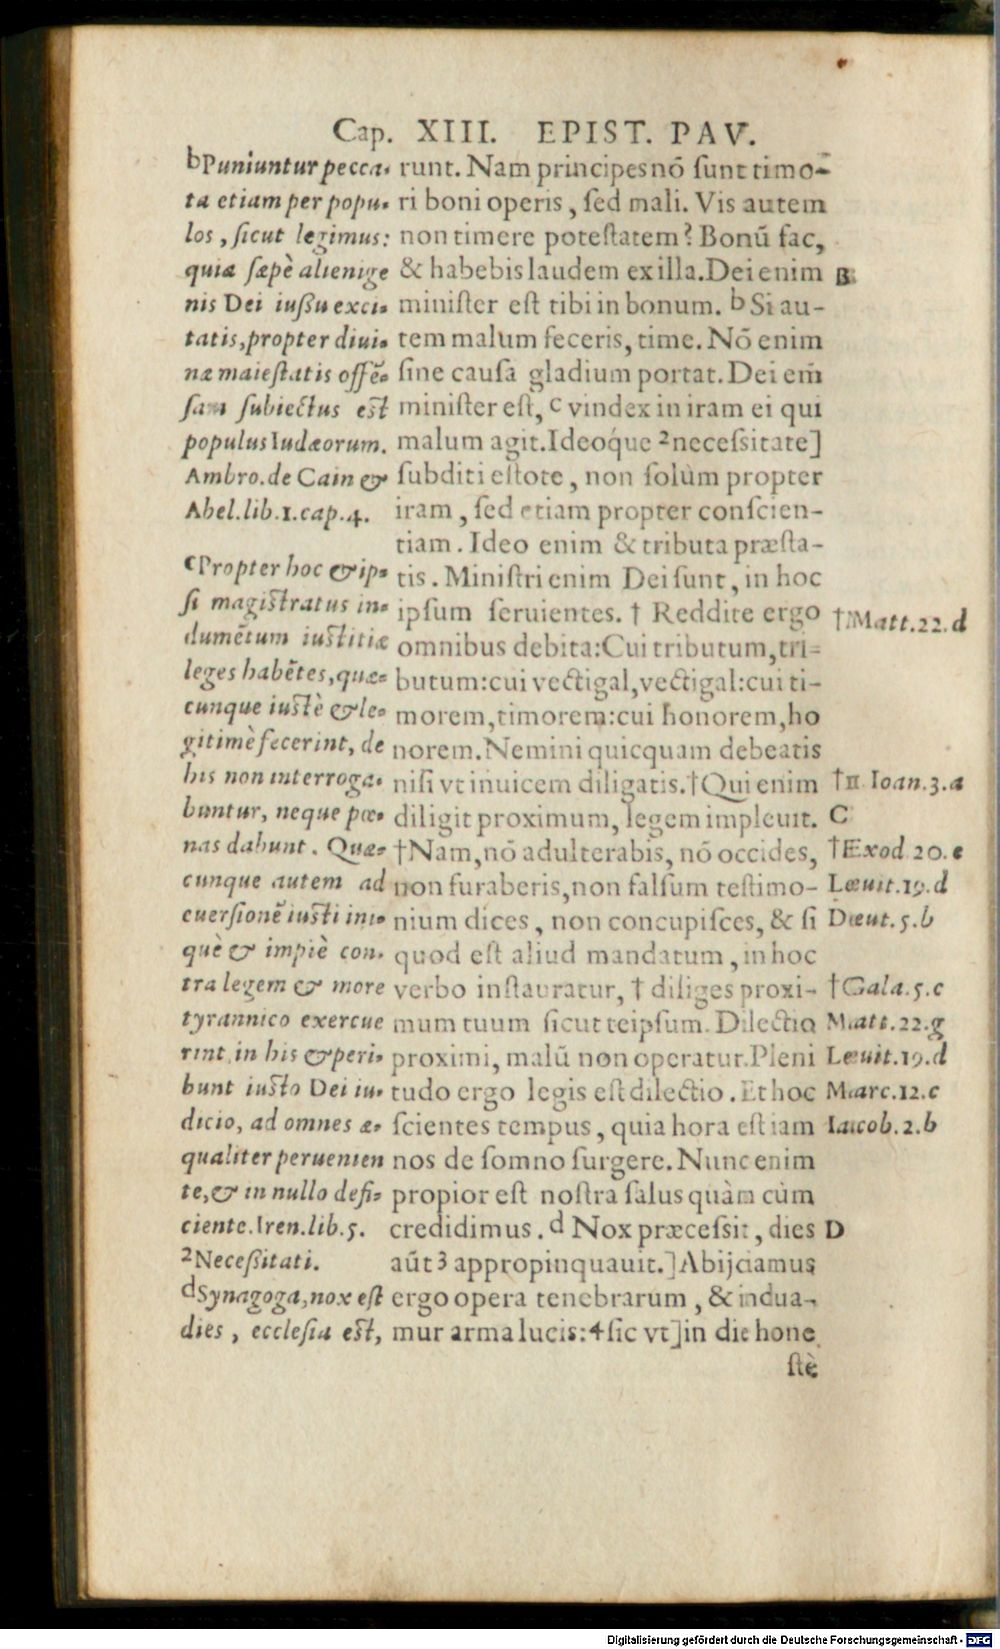 Cap. XIII. EPIST. PAV.
bPuniuntur pecca-
ta etiam per popu-
los, ſicut legimus:
quia ſæpè alienige
nis Dei iuſſu exci-
tatis, propter diui-
næ maieſtatis offẽ-
ſam ſubiectus eſt
populus Iudæorum.
Ambro. de Cain &
Abel. lib. 1. cap. 4.
cPropter hoc & ip-
ſi magiſtratus in-
dumẽtum iuſtitiæ
leges habẽtes, quæ-
cunque iuſtè & le-
gitimè fecerint, de
his non interroga-
buntur, neque pœ-
nas dabunt. Quæ-
cunque autem ad
euerſionẽ iuſti ini-
què & impiè con-
tra legem & more
tyrannico exercue
rint, in his & peri-
bunt iuſto Dei iu-
dicio, ad omnes æ-
qualiter peruenien
te, & in nullo defi-
ciente. Iren. lib. 5.
2Neceſſitati.
dSynagoga, nox eſt
dies, eccleſia eſt,
runt. Nam principes nõ ſunt timo-
ri boni operis, ſed mali. Vis autem
non timere poteſtatem? Bonũ fac,
& habebis laudem ex illa. Dei enim
miniſter eſt tibi in bonum. b Si au-
tem malum feceris, time. Nõ enim
ſine cauſa gladium portat. Dei em̃
miniſter eſt, c vindex in iram ei qui
malum agit. Ideóque 2neceſsitate]
ſubditi eſtote, non ſolùm propter
iram, ſed etiam propter conſcien-
tiam. Ideo enim & tributa præſta-
tis. Miniſtri enim Dei ſunt, in hoc
ipſum ſeruientes. † Reddite ergo
omnibus debita: Cui tributum, tri-
butum: cui vectigal, vectigal: cui ti-
morem, timorem: cui honorem, ho
norem. Nemini quicquam debeatis
niſi vt inuicem diligatis. †Qui enim
diligit proximum, legem impleuit.
†Nam, nõ adulterabis, nõ occides,
non furaberis, non falſum teſtimo-
nium dices, non concupiſces, & ſi
quod eſt aliud mandatum, in hoc
verbo inſtauratur, † diliges proxi-
mum tuum ſicut teipſum. Dilectio
proximi, malũ non operatur. Pleni
tudo ergo legis eſt dilectio. Et hoc
ſcientes tempus, quia hora eſt iam
nos de ſomno ſurgere. Nunc enim
propior eſt noſtra ſalus quàm cùm
credidimus. d Nox præceſsit, dies
aũt 3 appropinquauit.] Abijciamus
ergo opera tenebrarum, & indua-
mur arma lucis: 4ſic vt] in die hone
ſtè
B
†Matt. 22. d
†II Ioan. 3. a
C
†Exod 20. c
Leuit. 19. d
Deut. 5. b
†Gala. 5. c
Matt. 22. g
Leuit. 19. d
Marc. 12. c
Iacob. 2. b
D
Digitalisierung gefördert durch die Deutsche Forschungsgemeinschaft - DFG